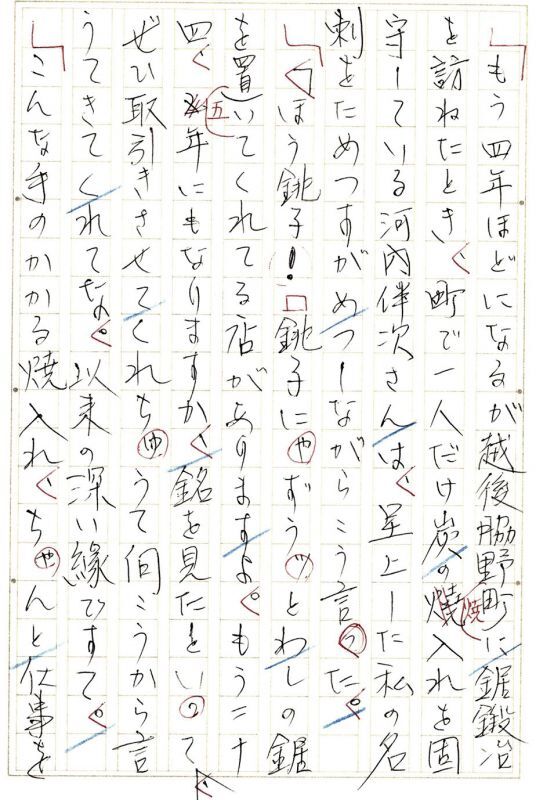 もう四年ほどになるが越後脇野町に鋸鍛冶
を訪ねたとき、町で一人だけ炭の焼入れを固
守している河内伴次さんは、呈上した私の名
刺をためつすがめつしながらこう言った。
「ほう銚子！銚子にやずうっとわしの鋸
を置いてくれてる店がありますよ。もう二十
四、五年にもなりますか、銘を見たといって、
ぜひ取引きさせてくれちゅうて向こうから言
うてきてくれてな。以来の深い縁ですて。
こんな手のかかる焼入れ、ちゃんと仕事を